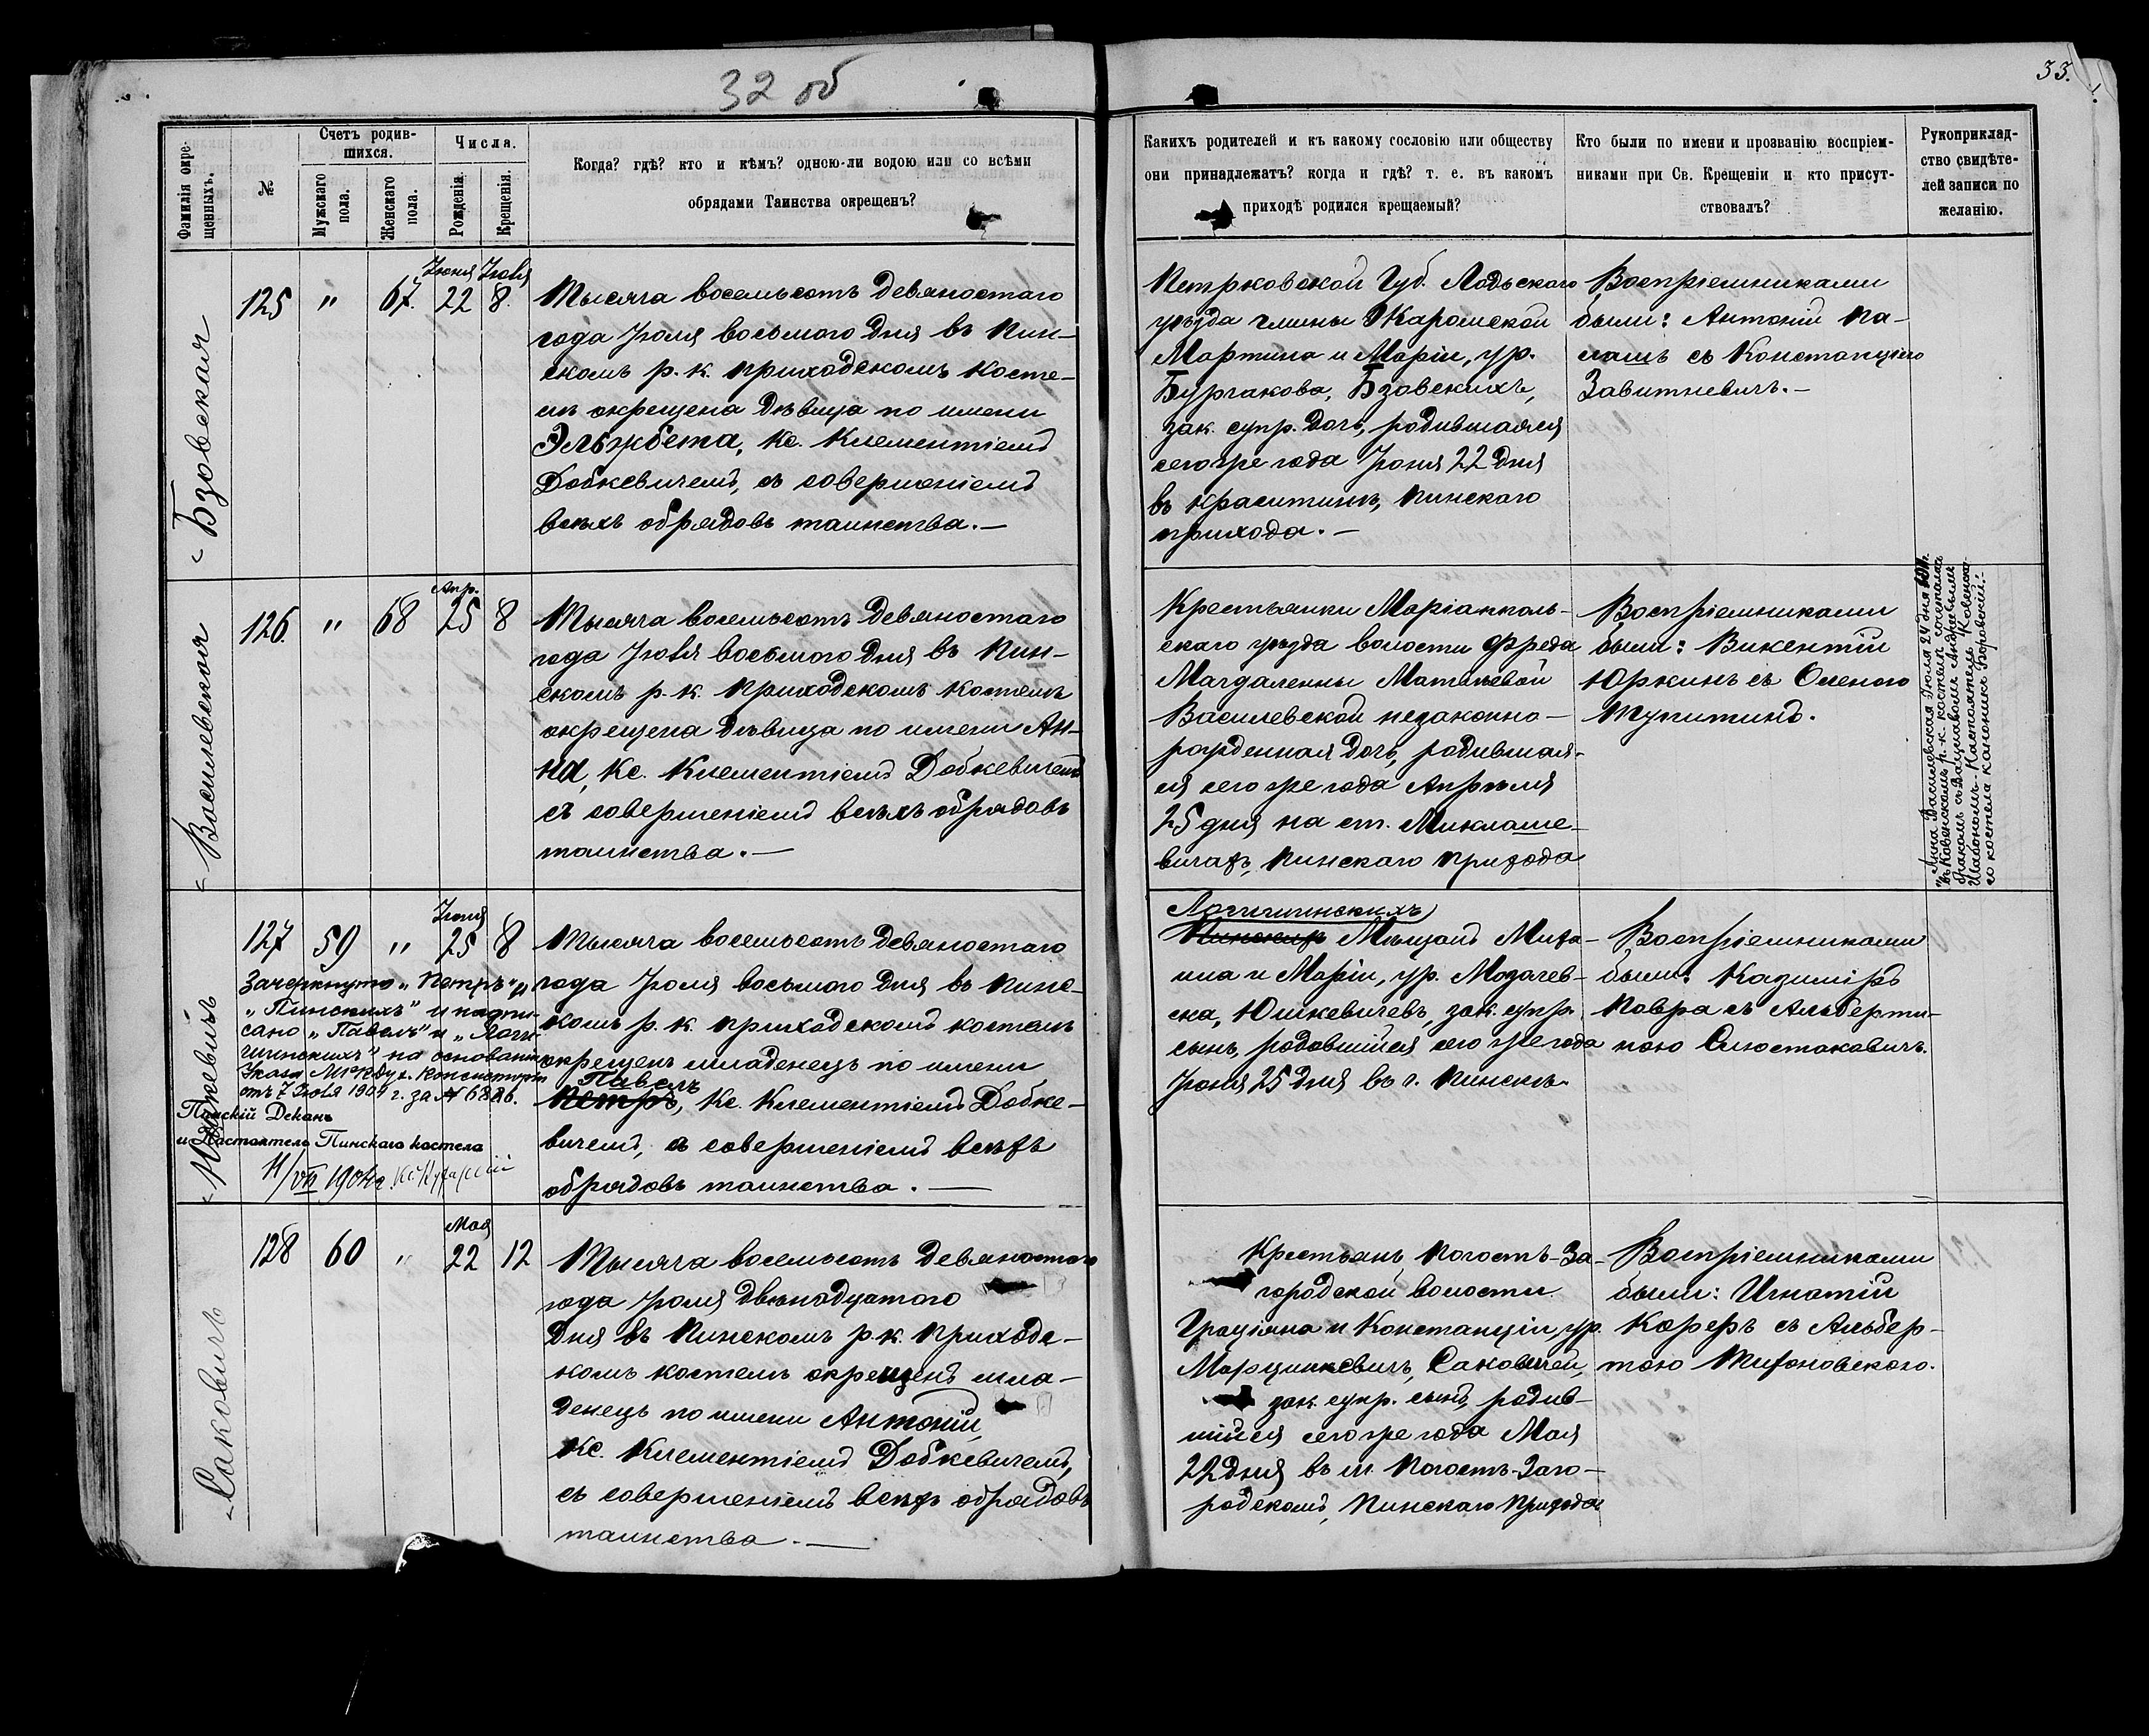 32 об
33.
Фамилія окре-
щенныхъ.
№
Счетъ родив-
шихся.
Мужскаго
пола.
Женскаго
пола.
Числа.
Рожденія.
Крещенія.
Когда? гдѣ? кто и кѣмъ? одною-ли водою или со всѣми
обрядами Таинства окрещенъ?
Какихъ родителей и къ какому сословію или обществу
они принадлежатъ? когда и гдѣ? т. е. въ какомъ
приходѣ родился крещаемый?
Кто были по имени и прозванію воспріем-
никами при Св. Крещеніи и кто присут-
ствовалъ?
Рукоприклад-
ство свидѣте-
лей записи по
желанію.
Бзовская
Іюня Іюля
125 " 67. 22 8.
Тысяча восемьсотъ девяностаго
года Іюля восьмого дня въ Пин-
скомъ р. к. приходскомъ косте-
лѣ окрещена дѣвица по имени
Эльжбета, Кс. Клементіемъ
Добкевичемъ, съ совершеніемъ
всѣхъ обрядовъ таинства.—
Петрковской Губ. Лодьскаго
уѣзда гмины Жаромской
Мартина и Маріи, ур.
Бургакова, Бзовскихъ,
зак. супр. дочь, родившаяся
сего же года Іюня 22 дня
въ Красилинѣ, Пинскаго
прихода.—
Воспріемниками
были: Антоній Па-
лашъ съ Констанціею
Завитневичъ.—
Василевская
Апр.
126. " 68 25 8
Тысяча восемьсотъ девяностаго
года Іюля восьмого дня въ Пин-
скомъ р. к. приходскомъ костелѣ
окрещена дѣвица по имени Ан-
на, Кс. Клементіемъ Добкевичемъ
съ совершеніемъ всѣхъ обрядовъ
таинства.—
Крестьянки Маріамполь-
скаго уѣзда волости Фреда
Магдалены Матвѣевой
Василевской незаконно-
рожденная дочь, родившая-
ся сего же года Апрѣля
25 дня на ст. Миклаше-
вичахъ, Пинскаго прихода
Воспріемниками
были: Викентій
Юркинъ съ Оленою
Тупитинъ.
"Анна Василевская Іюля 24 дня
въ Ковенскомъ р. к. костелѣ сочеталась
бракомъ съ Вацлавомъ Андреевымъ
Шабономъ.- Настоятель Ковенска-
го костела каноникъ Боровскій.-
Юшкевичъ
Іюня
127 59 " 25 8
Зачеркнуто „Петръ" и
„Пинскихъ" и надпи-
сано „Павелъ" и „Логи-
шинскихъ" на основаніи
Указа М Р К Дух. Консисторіи
отъ 7 Іюля 1904 г. за № 6886.
Пинскій Деканъ
и Настоятель Пинскаго костела
11/VII 1904 г.
Тысяча восемьсотъ девяностаго
года Іюля восьмого дня въ Пинс-
комъ р. к. приходскомъ костелѣ
окрещенъ младенецъ по имени
Павелъ
Петръ, Кс. Клементіемъ Добке-
вичемъ, съ совершеніемъ всѣхъ
обрядовъ таинства.—
Логишинскихъ
Пинскихъ Мѣщанъ Миха-
ила и Маріи, ур. Мозачев-
ска, Юшкевичевъ, зак. супр.
сынъ, родившійся сего же года
Іюня 25 дня въ г. Пинскѣ.
Воспріемниками
были: Казиміръ
Павра съ Альберти-
ною Слюстаковичъ.
Саковичъ
Мая
128 60 " 22 12
Тысяча восемьсотъ девяностаго
года Іюля двѣнадцатого
дня въ Пинскомъ р. к. приходс-
комъ костелѣ окрещенъ мла-
денецъ по имени Антоній,
Кс. Клементіемъ Добкевичемъ,
съ совершеніемъ всѣхъ обрядовъ
таинства.—
Крестьянъ, Погостъ-За-
городской волости
Граціяна и Констанціи, ур.
Марцинкевичъ, Саковичей,
зак. супр. сынъ, родив-
шійся сего же года Мая
22 дня въ м. Погостъ-Заго-
родскомъ, Пинскаго прихода
Воспріемниками
были: Игнатій
Кореръ съ Альбер-
тою Тихоновскою.